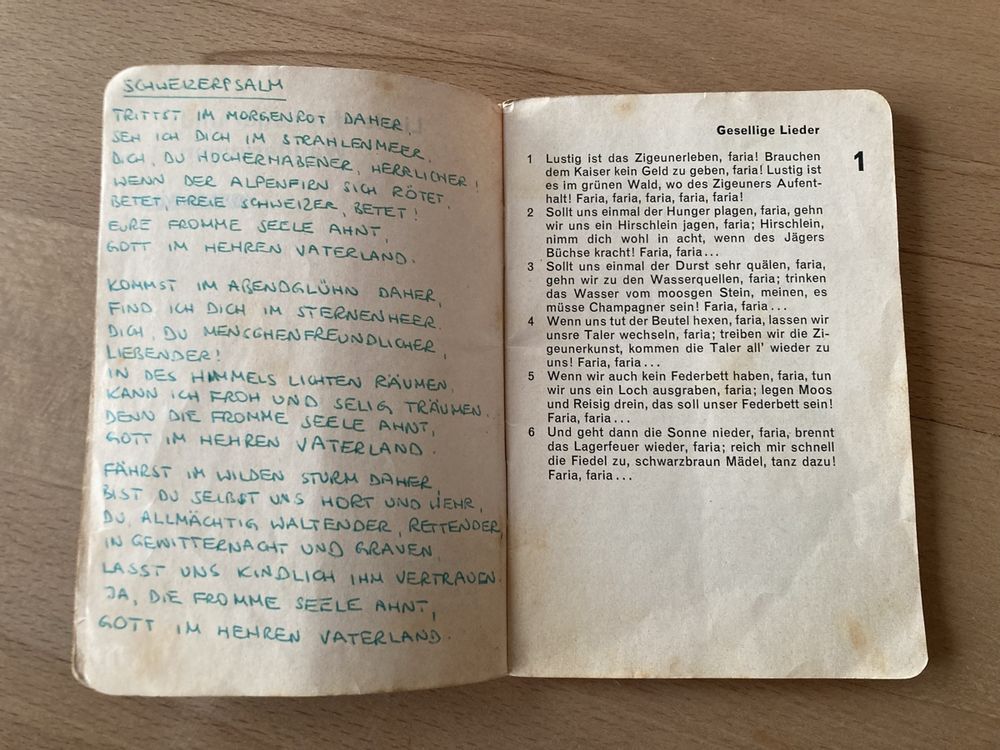 SCHWEIZERPSALM
TRITTST IM MORGENROT DAHER,
SEH ICH DICH IM STRAHLENMEER,
DICH, DU HOCHERHABENER, HERRLICHER!
WENN DER ALPENFIRN SICH RÖTET,
BETET, FREIE SCHWEIZER, BETET!
EURE FROMME SEELE AHNT,
GOTT IM HEHREN VATERLAND.
KOMMST IM ABENDGLÜHN DAHER,
FIND ICH DICH IM STERNENHEER.
DICH, DU MENSCHENFREUNDLICHER,
LIEBENDER!
IN DES HIMMELS LICHTEN RÄUMEN,
KANN ICH FROH UND SELIG TRÄUMEN.
DENN DIE FROMME SEELE AHNT,
GOTT IM HEHREN VATERLAND.
FÄHRST IM WILDEN STURM DAHER,
BIST DU SELBST UNS HORT UND WEHR,
DU, ALLMÄCHTIG WALTENDER, RETTENDER,
IN GEWITTERNACHT UND GRAUEN.
LASST UNS KINDLICH IHM VERTRAUEN.
JA, DIE FROMME SEELE AHNT,
GOTT IM HEHREN VATERLAND.
Gesellige Lieder
1
1 Lustig ist das Zigeunerleben, faria! Brauchen
dem Kaiser kein Geld zu geben, faria! Lustig ist
es im grünen Wald, wo des Zigeuners Aufent-
halt! Faria, faria, faria, faria, faria!
2 Sollt uns einmal der Hunger plagen, faria, gehn
wir uns ein Hirschlein jagen, faria; Hirschlein,
nimm dich wohl in acht, wenn des Jägers
Büchse kracht! Faria, faria...
3 Sollt uns einmal der Durst sehr quälen, faria,
gehn wir zu den Wasserquellen, faria; trinken
das Wasser vom moosgen Stein, meinen, es
müsse Champagner sein! Faria, faria...
4 Wenn uns tut der Beutel hexen, faria, lassen wir
unsre Taler wechseln, faria; treiben wir die Zi-
geunerkunst, kommen die Taler all' wieder zu
uns! Faria, faria...
5 Wenn wir auch kein Federbett haben, faria, tun
wir uns ein Loch ausgraben, faria; legen Moos
und Reisig drein, das soll unser Federbett sein!
Faria, faria...
6 Und geht dann die Sonne nieder, faria, brennt
das Lagerfeuer wieder, faria; reich mir schnell
die Fiedel zu, schwarzbraun Mädel, tanz dazu!
Faria, faria...